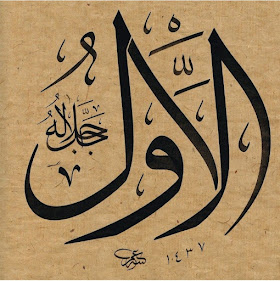 الأول
جل جلاله
١٤٣٧